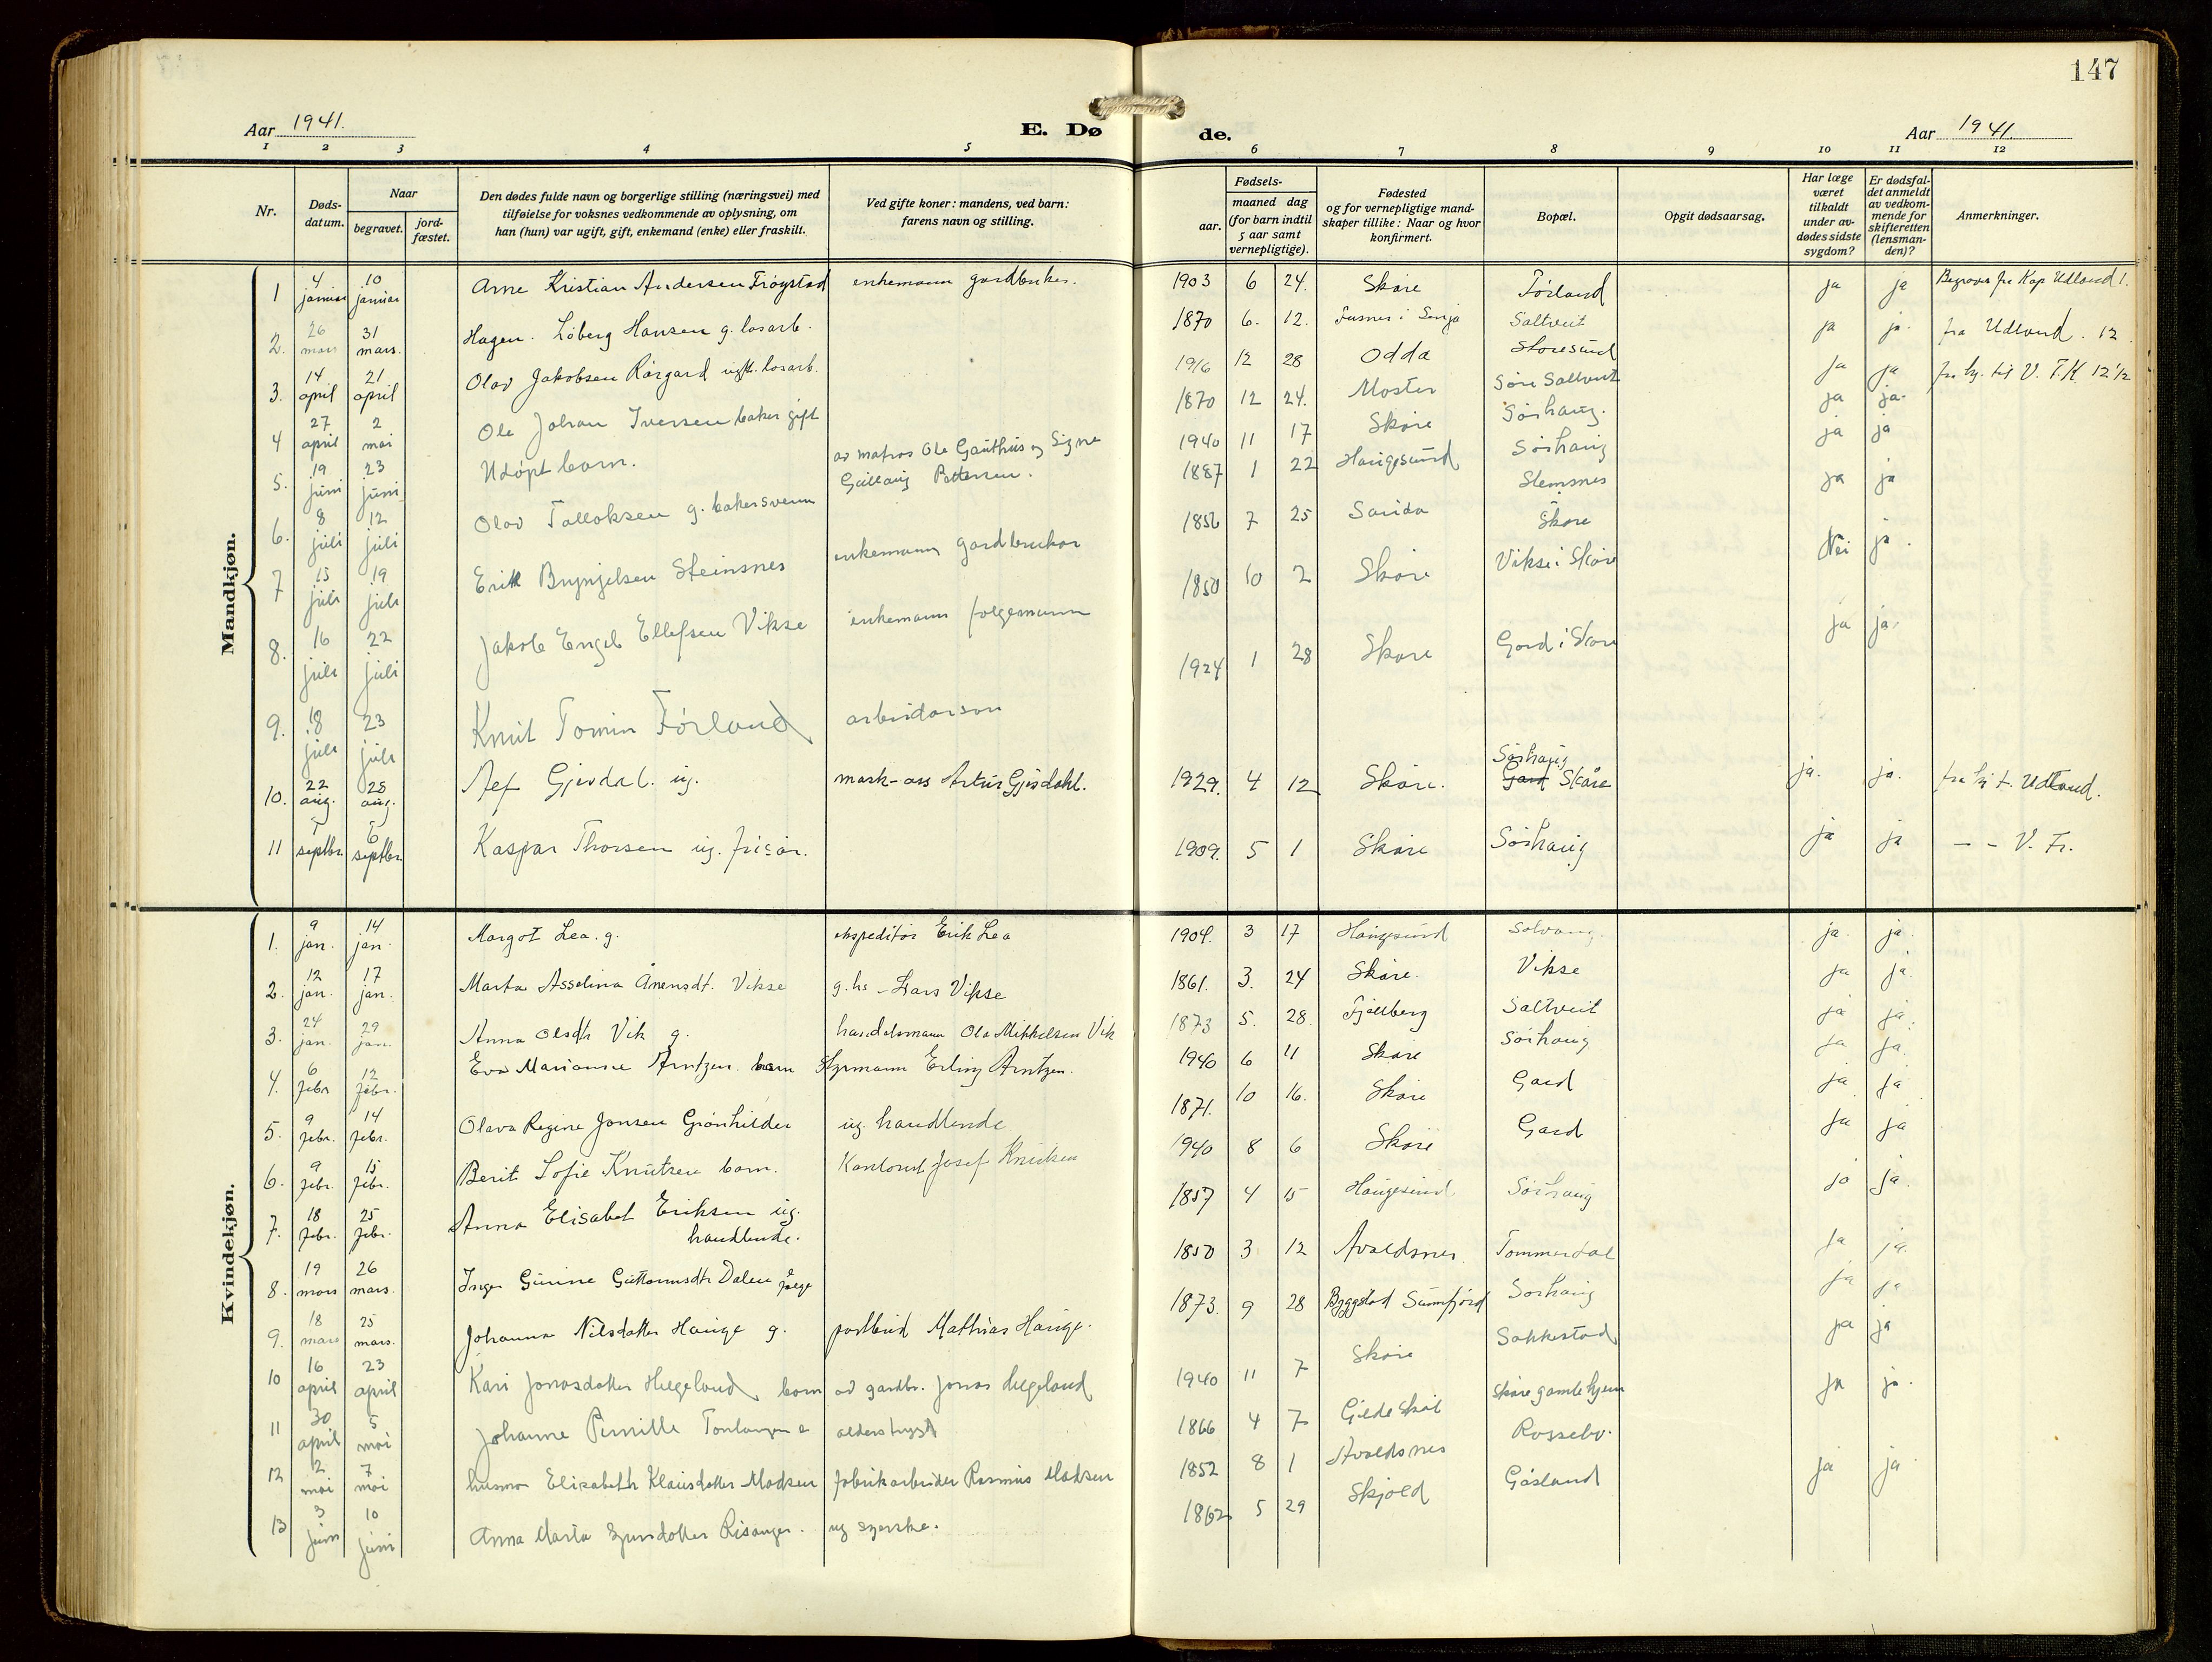 147
Aar 1941.
E. Dø de.
Aar 1941.
1 2 3 4 5 6 7 8 9 10 11 12
Nr.
Døds-datum.
Naar
begravet.
jord-fæstet.
Den dødes fulde navn og borgerlige stilling (næringsvei) med
tilføielse for voksnes vedkommende av oplysning, om
han (hun) var ugift, gift, enkemand (enke) eller fraskilt.
Ved gifte koner: mandens, ved barn:
farens navn og stilling.
aar.
Fødsels-
maaned dag
(for barn indtil
5 aar samt
vernepligtige).
Fødested
og for vernepligtige mand-
skaper tillike: Naar og hvor
konfirmert.
Bopæl.
Opgit dødsaarsag.
Har læge
været
tilkaldt
under av-
dødes sidste
sygdom?
Er dødsfal-
det anmeldt
av vedkom-
mende for
skifteretten
(lensman-
den)?
Anmerkninger.
Mandkjøn.
1 4 januar 10 januar Arne Kristian Andersen Frøystad enkemann gardbruker. 1903 6 24. Skåre Førland ja ja Begraves fra Kap Udland 1.
2. 26 mars 31 mars. Hagen. Løberg Hansen g. losarb. 1870 6. 12. i Senja Saltveit ja ja. fra Udland. 12.
3. 14 april 21 april Olav Jakobsen Rørgard ugft. losarb. 1916 12 28 Odda Storesund ja ja fra hj. til V. F.K. 12½
4 27 april 2 mai Ole Johan Iversen baker gift 1870 12 24. Moster Søre Saltveit ja ja.
5. 19 juni 23 juni Udøpt barn. av matros Ole Gauthus og Signe Gullaug Pettersen. 1940 11 17 Skåre Sørhaug. ja ja
6. 8 juli 12 juli Olav Talloksen g. bakersvenn 1887 1 22 Haugesund Sørhaug ja ja
7 15 juli 19 juli Erik Brynjelsen Steinsnes enkemann gardbruker 1856 7 25 Sauda Stemsnes Skåre Nei ja.
8. 16 juli 22 juli Jakob Engel Ellefsen Vikse enkemann følgemann 1850 10 2 Skåre Vikse i Skåre ja ja.
9. 18 juli 23 juli Knut Tomin Førland arbeidarson 1924 1 28 Skåre Gard i Skåre
10. 22 aug. 28 aug. Gjerdal. ug. mask-ass Artur Gjesdahl. 1929. 4 12 Skåre. Sørhaug Gard Skåre ja. ja. fra hj t. Udland.
11 1 septbr. 6 septbr. Kaspar Thorsen ug. frisør. 1909. 5 1 Skåre Sørhaug ja ja — – V. Fr.
Kvindekjøn.
1. 9 jan. 14 jan. Margot Lea. g. ekspeditør Erik Lea 1904. 3 17 Haugesund Solvang. ja. ja.
2. 12 jan. 17 jan. Marta Asselina Ånensdt. Vikse g. hs – Lars Vikse 1861. 3. 24 Skåre. Vikse ja ja.
3. 24 jan. 29 jan. Anna Olsdtr Vik g. handelsmann Ola Mikkelsen Vik 1873 5. 28. Fjellberg Saltveit ja ja.
4. 6 febr 12 febr. Eva Marianne Arntzen. barn Styrmann Erling Arntzen. 1940 6 11 Skåre Sørhaug ja ja.
5. 9 febr. 14 febr. Olava Regine Jansen Grønhilder ug. handlende 1871. 10 16. Skåre Gard ja ja
6. 9 febr. 15 febr. Berit Sofie Knutzen barn. Kontorist Josef Knutsen 1940 8 6 Skåre Gard ja ja
7. 18 febr. 25 febr. Anna Elisabet Eriksen ug. handlende. 1857 4 15 Haugesund Sørhaug ja ja.
8. 19 mars 26 mars. Inger Gurine Guttormsdtr Dalen følge 1850 3 12 Avaldsnes Tommerdal ja ja.
9. 18 mars 25 mars. Johanna Nilsdatter Hauge g. postbud Mathias Hauge. 1873. 9 28 Byggstad Sunnfjord Sørhaug ja ja
10 16 april 23 april Kari Jonasdatter Helgeland, barn av gardbr. Jonas Helgeland 1940 11 7 Skåre Sakkestad ja ja
11 30 april 5 mai Johanne Pernille Tonlangen e alderstrygd 1866 4 7 Gildeskål Skåre gamlehjem ja ja.
12 2 mai 7 mai husmor Elisabeth Klausdatter Madsen fabrikarbeider Rasmus Madsen 1852 8 1 Avaldsnes Rossebø.
13 3 juni 10 juni Anna Marta Risanger. ug syerske. 1862 5 29 Skjold Gåsland ja ja